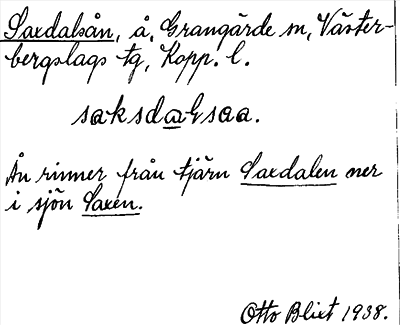 Saxdalsån, å, Grangärde sn, Väster-
bergslags tg, Kopp. l.
saksdaɬsaa.
Ån rinner från tjärn Saxdalen ner
i sjön Saxen.
Otto Blixt 1938.